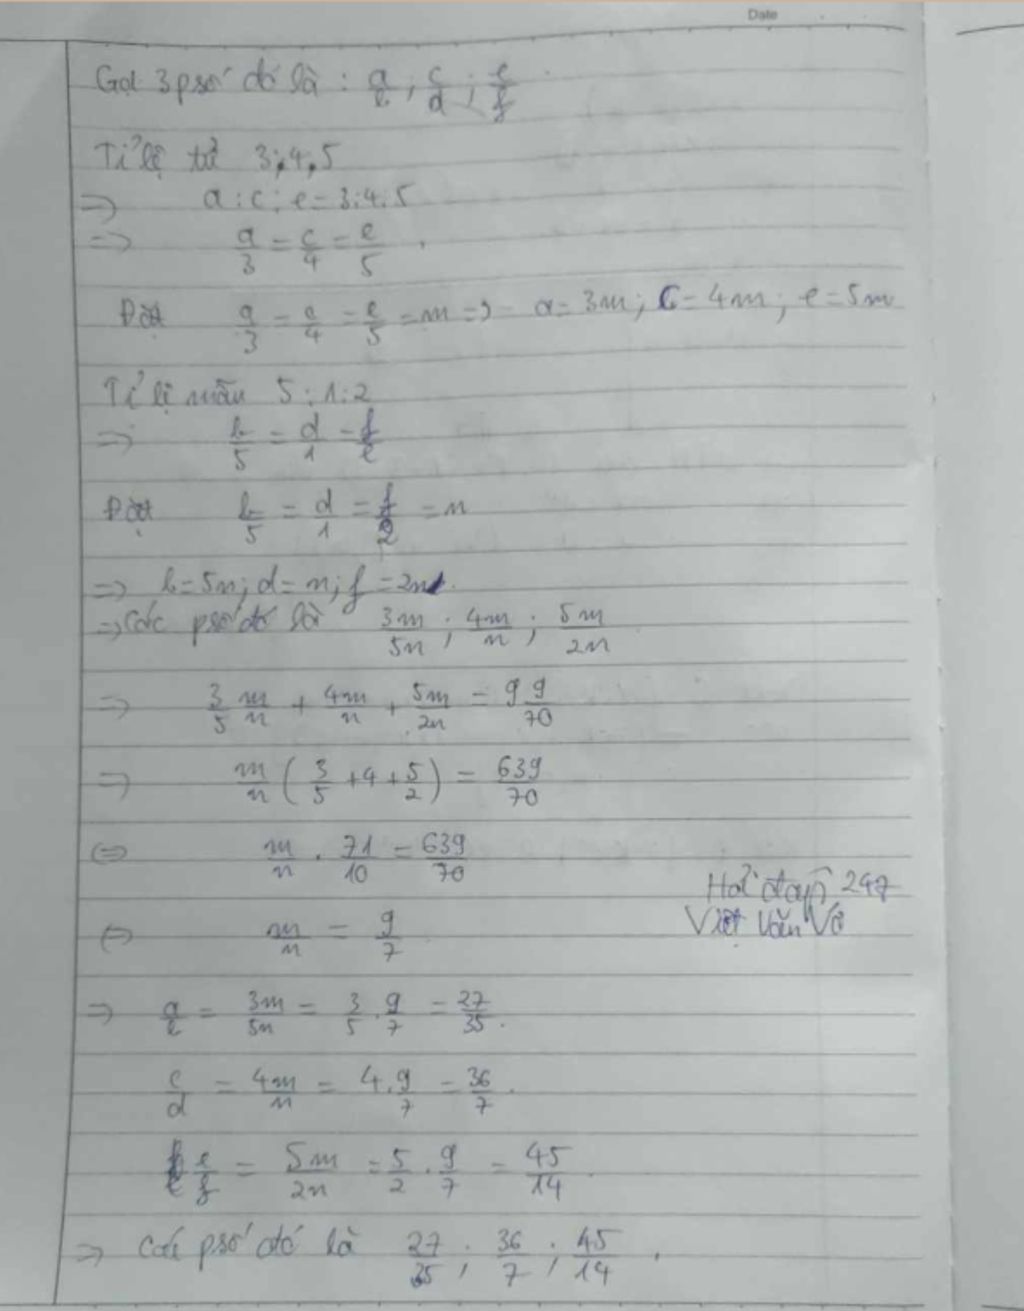 Date
Gọi 3 psố đó là : a/b ; c/d ; e/f
Tỉ lệ tử 3;4;5
=> a : c : e = 3:4:5
=> a/3 = c/4 = e/5
Đặt a/3 = c/4 = e/5 = m => a = 3m ; C = 4m ; e = 5m
Tỉ lệ mẫu 5 : 1 : 2
=> b/5 = d/1 = f/2
Đặt b/5 = d/1 = f/2 = n
=> b = 5n ; d = n ; f = 2n.
=> Các psố đó là 3m/5n ; 4m/n ; 5m/2n
=> 3/5 m/n + 4m/n + 5m/2n = 9 9/70
=> m/n ( 3/5 + 4 + 5/2 ) = 639/70
<=> m/n . 71/10 = 639/70
Hỏi đáp 247
<=> m/n = 9/7
Việt Văn Võ
=> a/b = 3m/5n = 3/5 . 9/7 = 27/35.
c/d = 4m/n = 4 . 9/7 = 36/7.
e/f = 5m/2n = 5/2 . 9/7 = 45/14.
=> Các psố đó là 27/35 ; 36/7 ; 45/14.